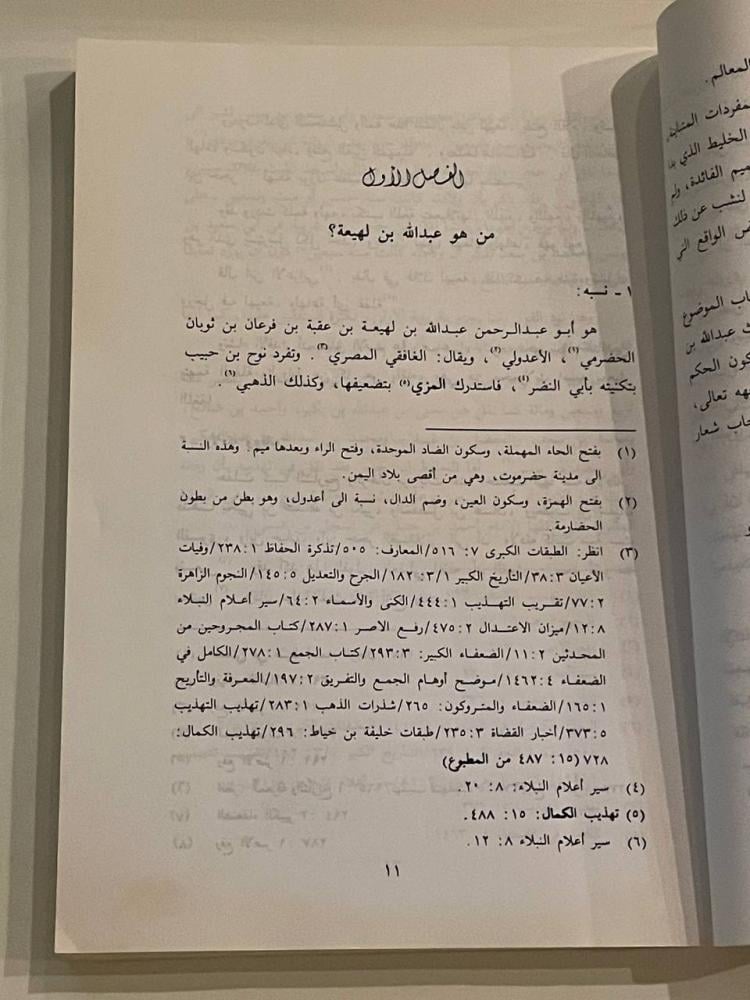 الفصل الأول
من هو عبدالله بن لهيعة؟
١ - نسبه:
هو أبو عبدالرحمن عبدالله بن لهيعة بن عقبة بن فرعان بن ثوبان
الحضرمي(١)، الأعدولي(٢)، ويقال: الغافقي المصري(٣). وتفرد نوح بن حبيب
بتكنيته بأبي النضر(٤)، فاستدرك المزي(٥) بتضعيفها، وكذلك الذهبي(٦).
(١) بفتح الحاء المهملة، وسكون الضاد الموحدة، وفتح الراء وبعدها ميم. وهذه النسبة
الى مدينة حضرموت، وهي من أقصى بلاد اليمن.
(٢) بفتح الهمزة، وسكون العين، وضم الدال، نسبة الى أعدول، وهو بطن من بطون
الحضارمة.
(٣) انظر: الطبقات الكبرى ٧: ٥١٦/المعارف: ٥٠٥/تذكرة الحفاظ ١: ٢٣٨/وفيات
الأعيان ٣: ٣٨/التأريخ الكبير ٣/١: ١٨٢/الجرح والتعديل ٥: ١٤٥/النجوم الزاهرة
٢: ٧٧/تقريب التهذيب ١: ٤٤٤/الكنى والأسماء ٢: ٦٤/سير أعلام النبلاء
٨: ١٢/ميزان الاعتدال ٢: ٤٧٥/رفع الاصر ١: ٢٨٧/كتاب المجروحين من
المحدثين ٢: ١١/الضعفاء الكبير: ٣: ٢٩٣/كتاب الجمع ١: ٢٧٨/الكامل في
الضعفاء ٤: ١٤٦٢/موضح أوهام الجمع والتفريق ٢: ١٩٧/المعرفة والتأريخ
١: ١٦٥/الضعفاء والمتروكون: ٢٦٥/شذرات الذهب ١: ٢٨٣/تهذيب التهذيب
٥: ٣٧٣/أخبار القضاة ٣: ٢٣٥/طبقات خليفة بن خياط: ٢٩٦/تهذيب الكمال:
٧٢٨ (١٥: ٤٨٧ من المطبوع)
(٤) سير أعلام النبلاء: ٨: ٢٠.
(٥) تهذيب الكمال: ١٥: ٤٨٨.
(٦) سير أعلام النبلاء ٨: ١٢.
١١
المعالم.
الخليط الذي
الفائدة، ولم
لنشب عن ذلك
الواقع التي
الموضوع
عبدالله بن
كون الحكم
تعالى،
شعار